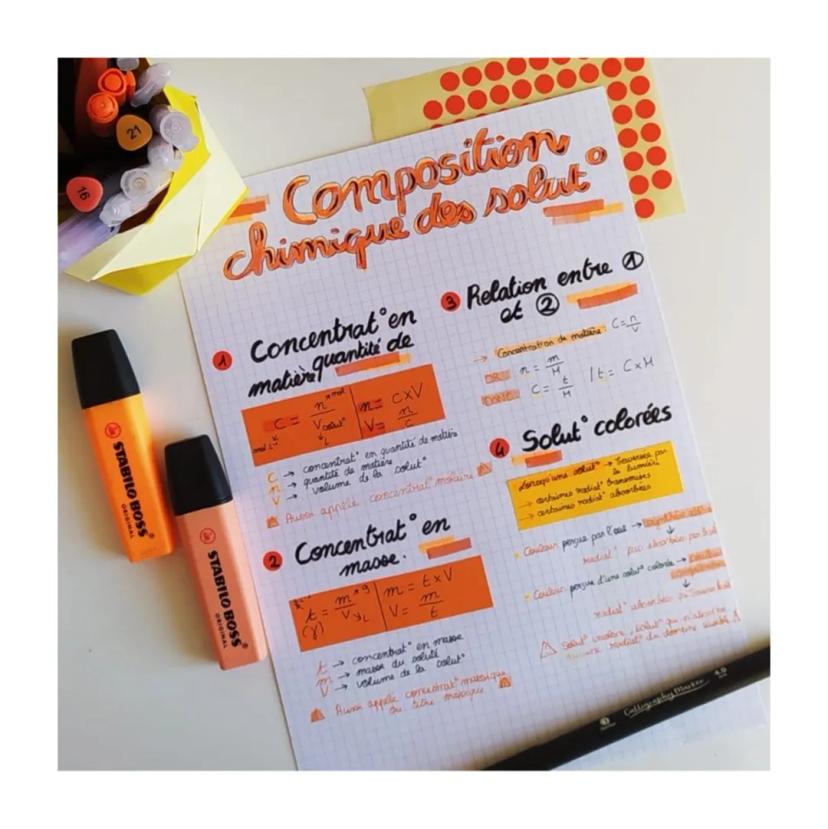 Composition
chimique des solut°
1 Concentrat° en
quantité de
matière
C = n mol / V solut° L
mol.L⁻¹
n = C×V
V = n/C
C → concentrat° en quantité de matière
n → quantité de matière
V → volume de la solut°
Aussi appelé concentrat° molaire
2 Concentrat° en
masse.
t = m g / V L
(γ)
m = t×V
V = m/t
t → concentrat° en masse
m → masse du soluté
V → volume de la solut°
Aussi appelé concentrat° massique
ou titre massique
3 Relation entre ①
et ②
→ Concentration de matière : C = n/V
OR n = m/M
DONC C = t/M / t = C×M
4 Solut° colorées
Lorsqu'une solut° → traversée par
la lumière
→ certaines radiat° transmises
→ certaines radiat° absorbées
Couleur perçue par l'œil →
radiat° absorbées par
Couleur perçue d'une solut° colorée →
radiat° absorbée par
Solut° incolore, solut° qui n'absorbe
aucune radiat° du domaine visible
STABILO BOSS
ORIGINAL
STABILO BOSS
ORIGINAL
21
16
Calligraphy Marker
4.0